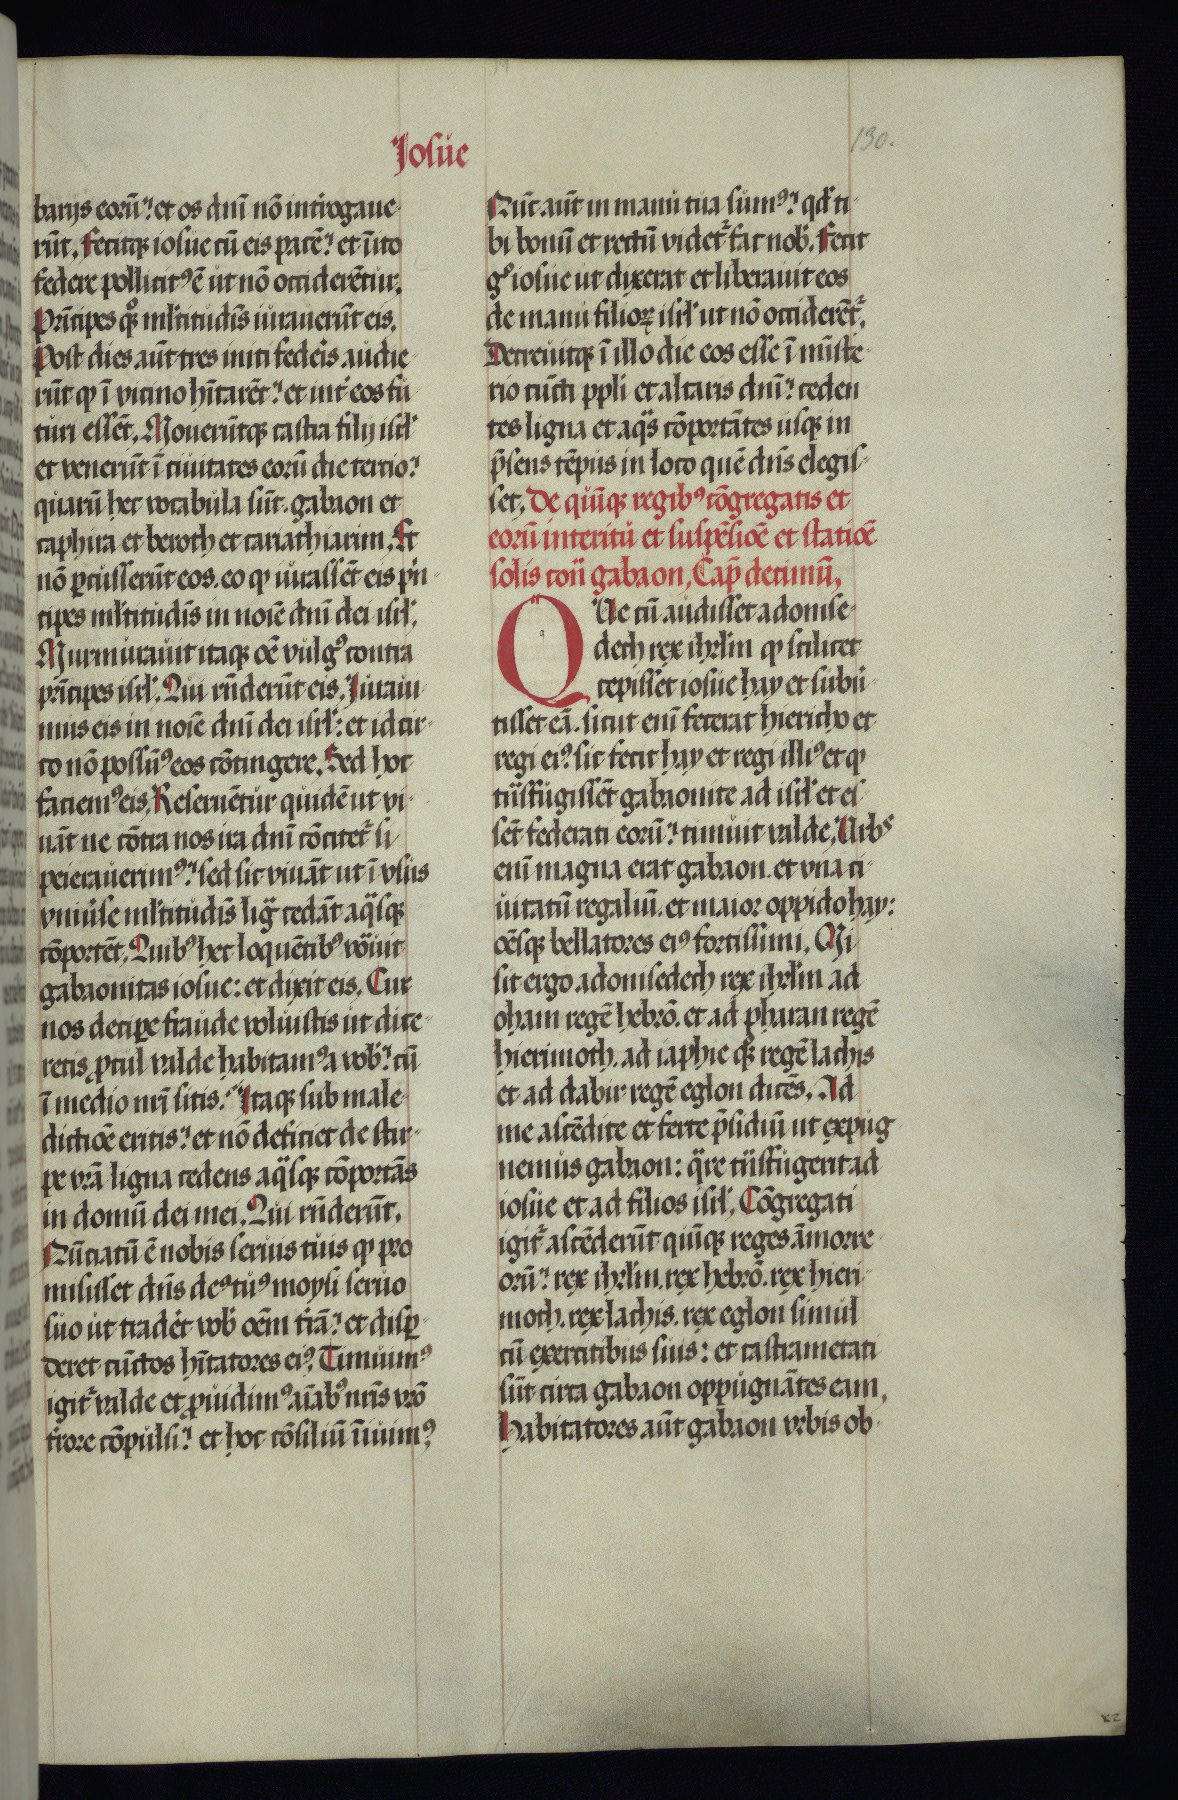 Josue
130.
barijs eorū? et os dnī nō int̓rogaue-
rūt. Fecitq; iosue cū eis pacē? et īito
federe pollicitꝰ ē ut nō occiderētur.
Prīcipes qͦꝫ ml̓titudīs iurauerūt eis.
Post dies aūt tres initi feder̓is audie-
rūt ꝙ ī vicino hītarēt? et int̓ eos fu-
turi essēt. Mouerūtq; castra filij isrl̓
et venerūt ī ciuitates eorū die tercio?
quarū hec vocabula sūt. gabaon et
caphira et beroth et cariathiarim. Et
nō ꝑcusserūt eos. eo ꝙ iurassēt eis prī-
cipes ml̓titudīs in noīe dnī dei isrl̓.
Murmurauit itaq; oē vulgꝰ contra
prīcipes isrl̓. Qui rn̄derūt eis. Iuraui-
mus eis in noīe dnī dei isrl̓: et idcir-
co nō possumꝰ eos cōtingere. Sed hoc
faciemꝰ eis. Reseruētur quidē ut vi-
uāt ne cōtra nos ira dnī cōcitet᷑ si
peierauerimꝰ? sed sic viuāt ut ī vsus
vniu̓se ml̓titudīs ligᷓ cedāt aqᷓsq;
cōportēt. Quibꝰ hec loquētibꝰ vocᷓuit
gabaonitas iosue: et dixit eis. Cur
nos decipe fraude voluistis ut dice-
retis ꝓcul valde habitamꝰ a vob̓? cū
ī medio nr̄i sitis? Itaq; sub male-
dictiōe eritis? et nō deficiet de stir-
pe vr̄a ligna cedens aqᷓsq; cōportās
in domū dei mei. Qui rn̄derūt.
Nūciatū ē nobis seruis tuis ꝙ pro
misisset dn̄s deꝰ tuꝰ moysi seruo
suo ut trader̓t vob̓ oēm tr̓ā? et disꝑ-
deret cūctos hītatores eiꝰ. Timuimꝰ
igit᷑ valde et ꝓuidimꝰ aīabꝰ nr̄is vr̄o
tr̓rore cōpulsi? et hoc cōsiliū īiuimꝰ?
Nūc aūt in manu tua sumꝰ? qd̓ ti-
bi bonū et rectū videt᷑ fac nob̓. Fecit
gͦ iosue ut dixerat et liberauit eos
de manu filioꝝ isrl̓ ut nō occiderēt᷑.
Decreuitq; ī illo die eos esse ī mīste-
rio cūcti ppl̓i et altaris dnī? ceden
tes ligna et aqᷓs cōportātes usq; in
p̄sens tēpus in loco quē dn̄s elegis-
set. De quīq; regibꝰ cōgregatis et
eorū interitu et suspēsiōe et statiōe
solis cont̄ gabaon, Cap̄ decimū,
QUe cū audisset adonise-
dech rex ihrl̓m ꝙ scilicet
cepisset iosue hay et subu̓-
tisset eā. sicut enī fecerat hiericho et
regi eiꝰ. sic fecit hay et regi illiꝰ et ꝙ
trāsfugissēt gabaonite ad isrl̓ et es-
sēt federati eorū? timuit valde. Urbs
enī magna erat gabaon. et vna ci-
uitatū regaliū. et maior oppido hay:
oēsq; bellatores eiꝰ fortissimi. Mi
sit ergo adonisedech rex ihrl̓m ad
oham regē hebrō. et ad pharan regē
hierimoth. ad iaphie qͦꝫ regē lachis
et ad dabir regē eglon dicēs. Ad
me ascēdite et ferte p̄sidiū ut expug-
nemus gabaon: qᷓre trāsfugerit ad
iosue et ad filios isrl̓. Cōgregati
igit᷑ ascēderūt quīq; reges āmorre-
orū? rex ihrl̓m. rex hebrō. rex hieri-
moth. rex lachis. rex eglon simul
cū exercitibus suis: et castrametati
sūt circa gabaon oppugnātes eam.
Habitatores aūt gabaon vrbis ob-